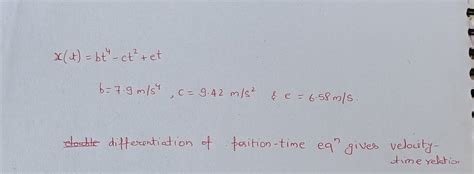 x(t) = bt⁴ - ct² + et
b = 7.9 m/s⁴ , c = 9.42 m/s² & e = 6.58 m/s
double differentiation of position-time eqⁿ gives velocity-
time relation